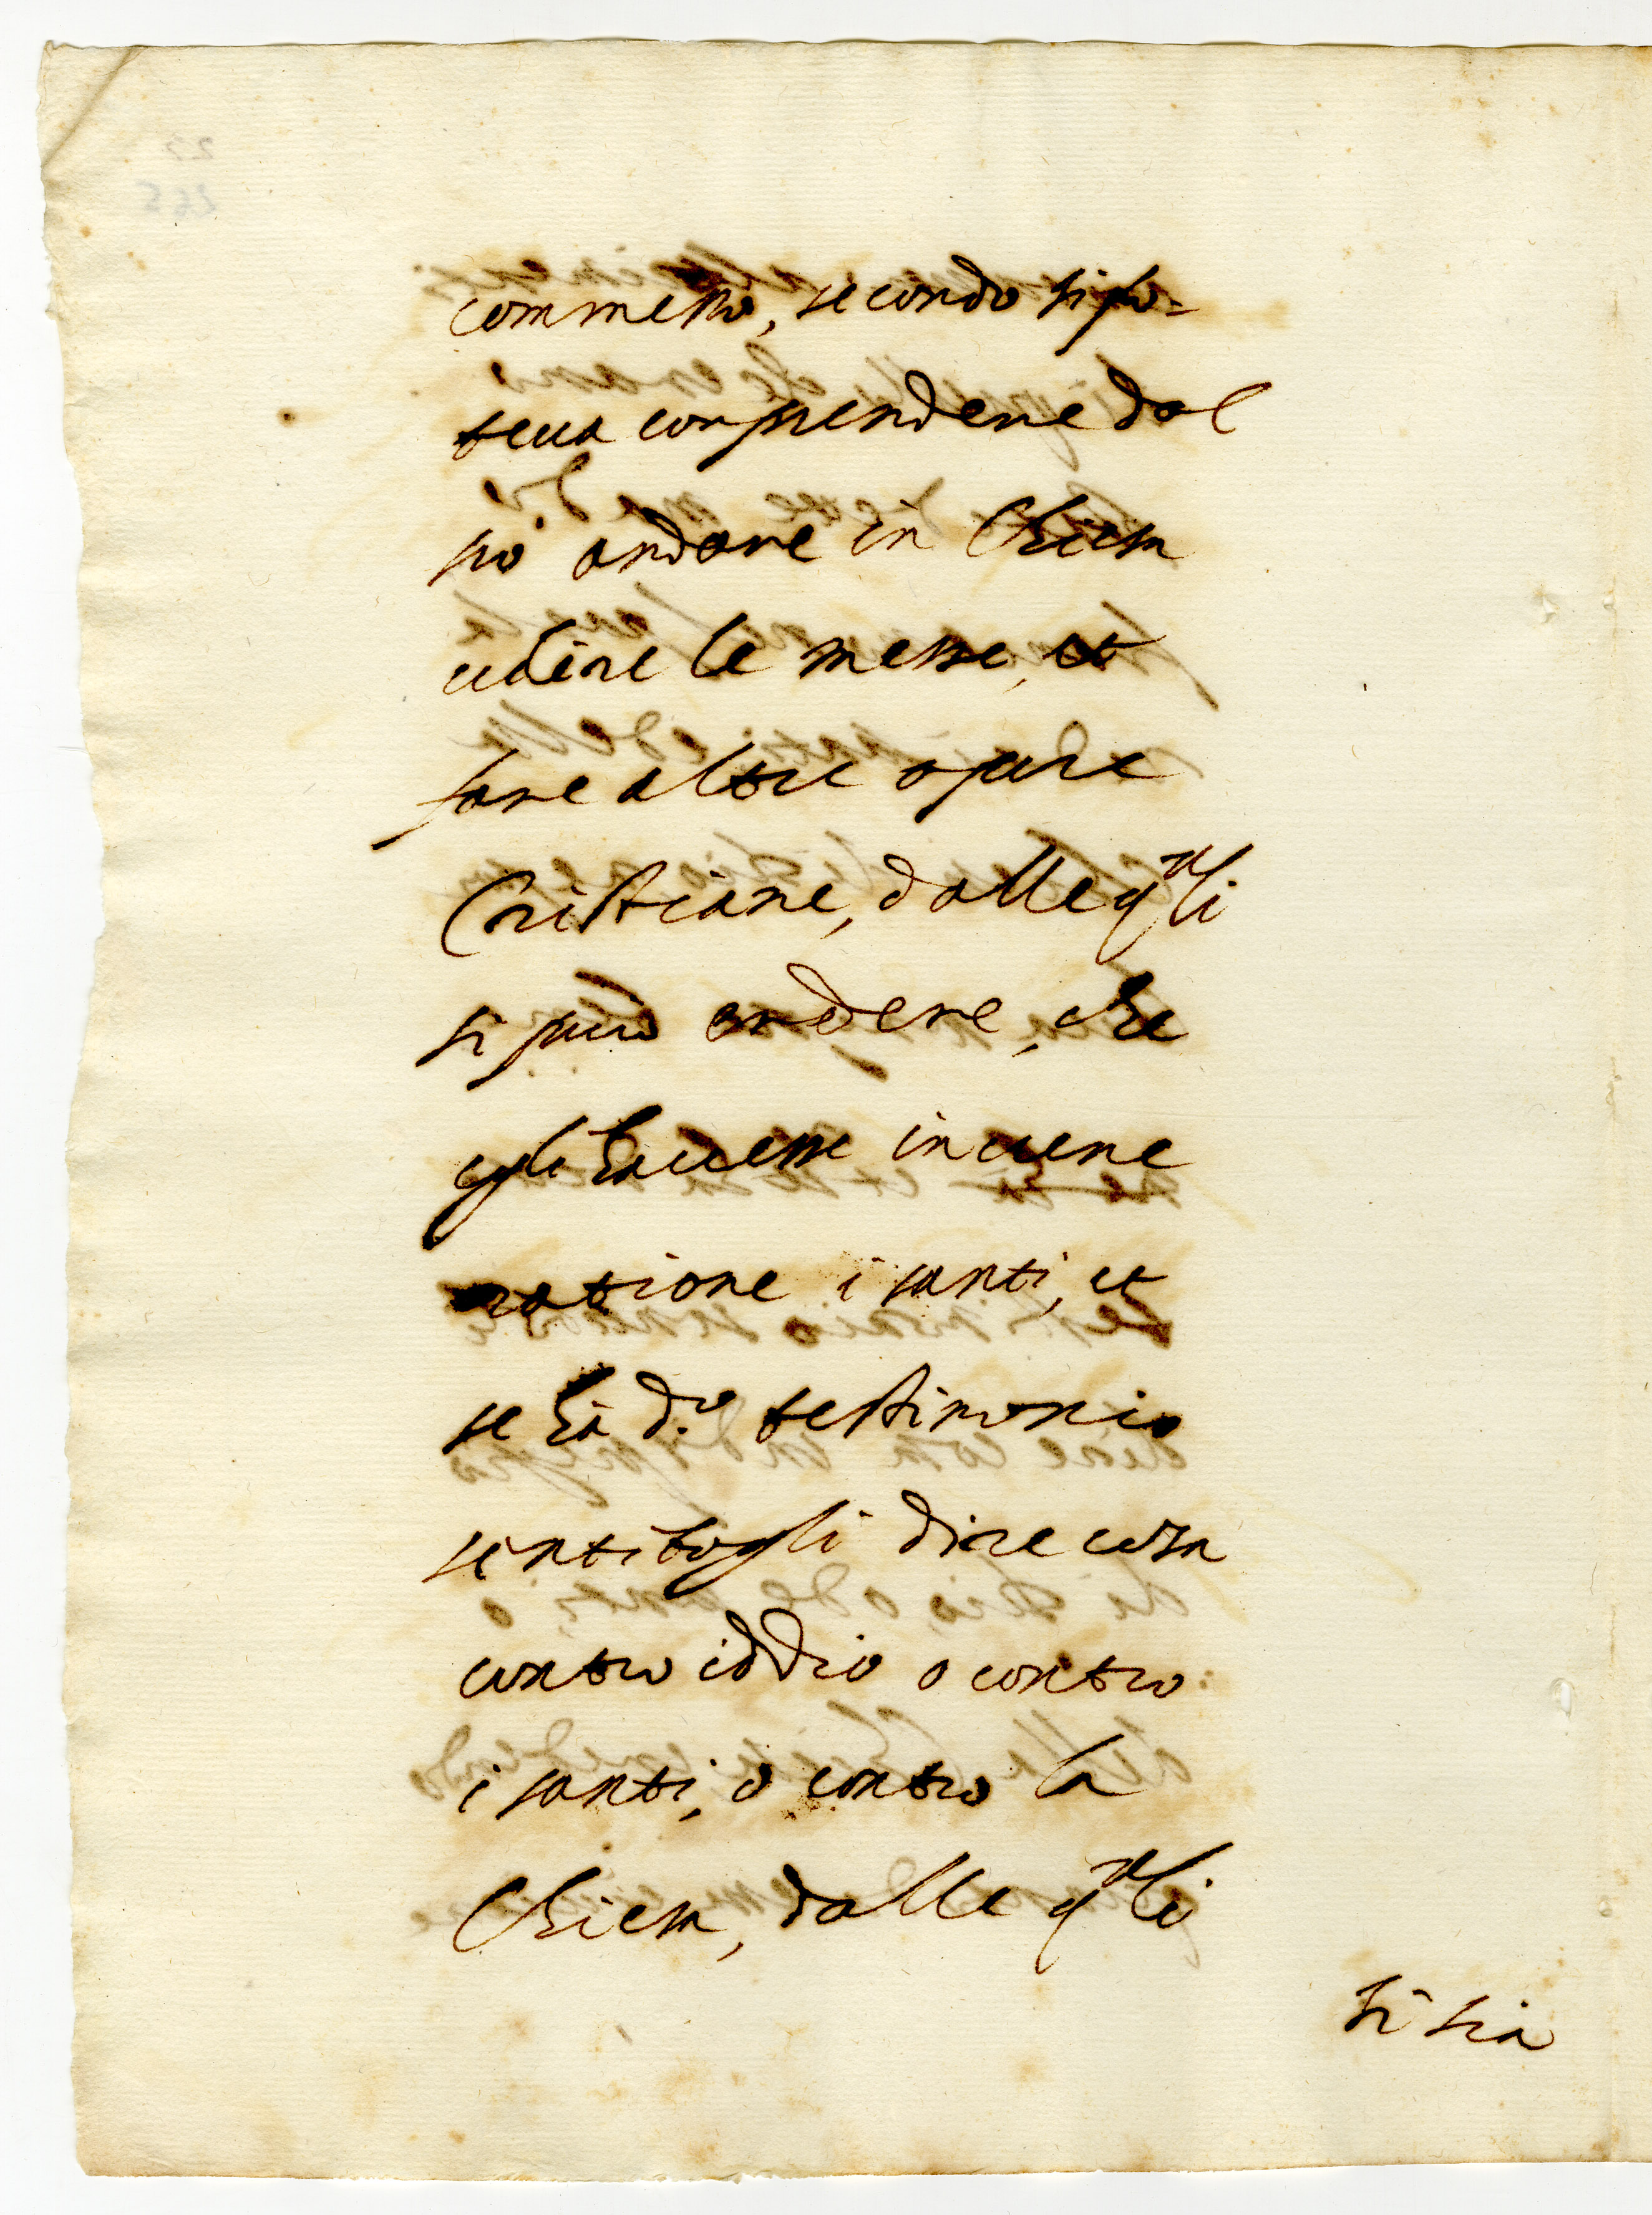 commesso, secondo si po-
teua comprendere dal
suo andare in Chiesa
udire le messe, et
fare altre opere
Cristiane, dalle q.ali
si può credere, che
egli hauesse in uene
ratione i santi, et
se hà d.o testimonio
sentitogli dire cosa
contro iddio o contro
i santi, o contro la
Chiesa, dalle q.ali
si sia